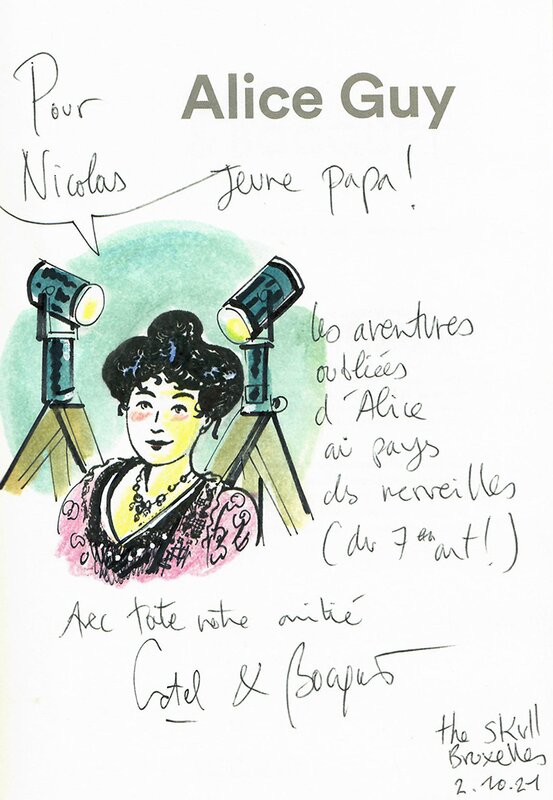 Alice Guy
Pour
Nicolas
Jeune papa !
les aventures
oubliées
d'Alice
au pays
des merveilles
(du 7em art !)
Avec toute notre amitié
Catel & Bocquet
the Skull
Bruxelles
2.10.21